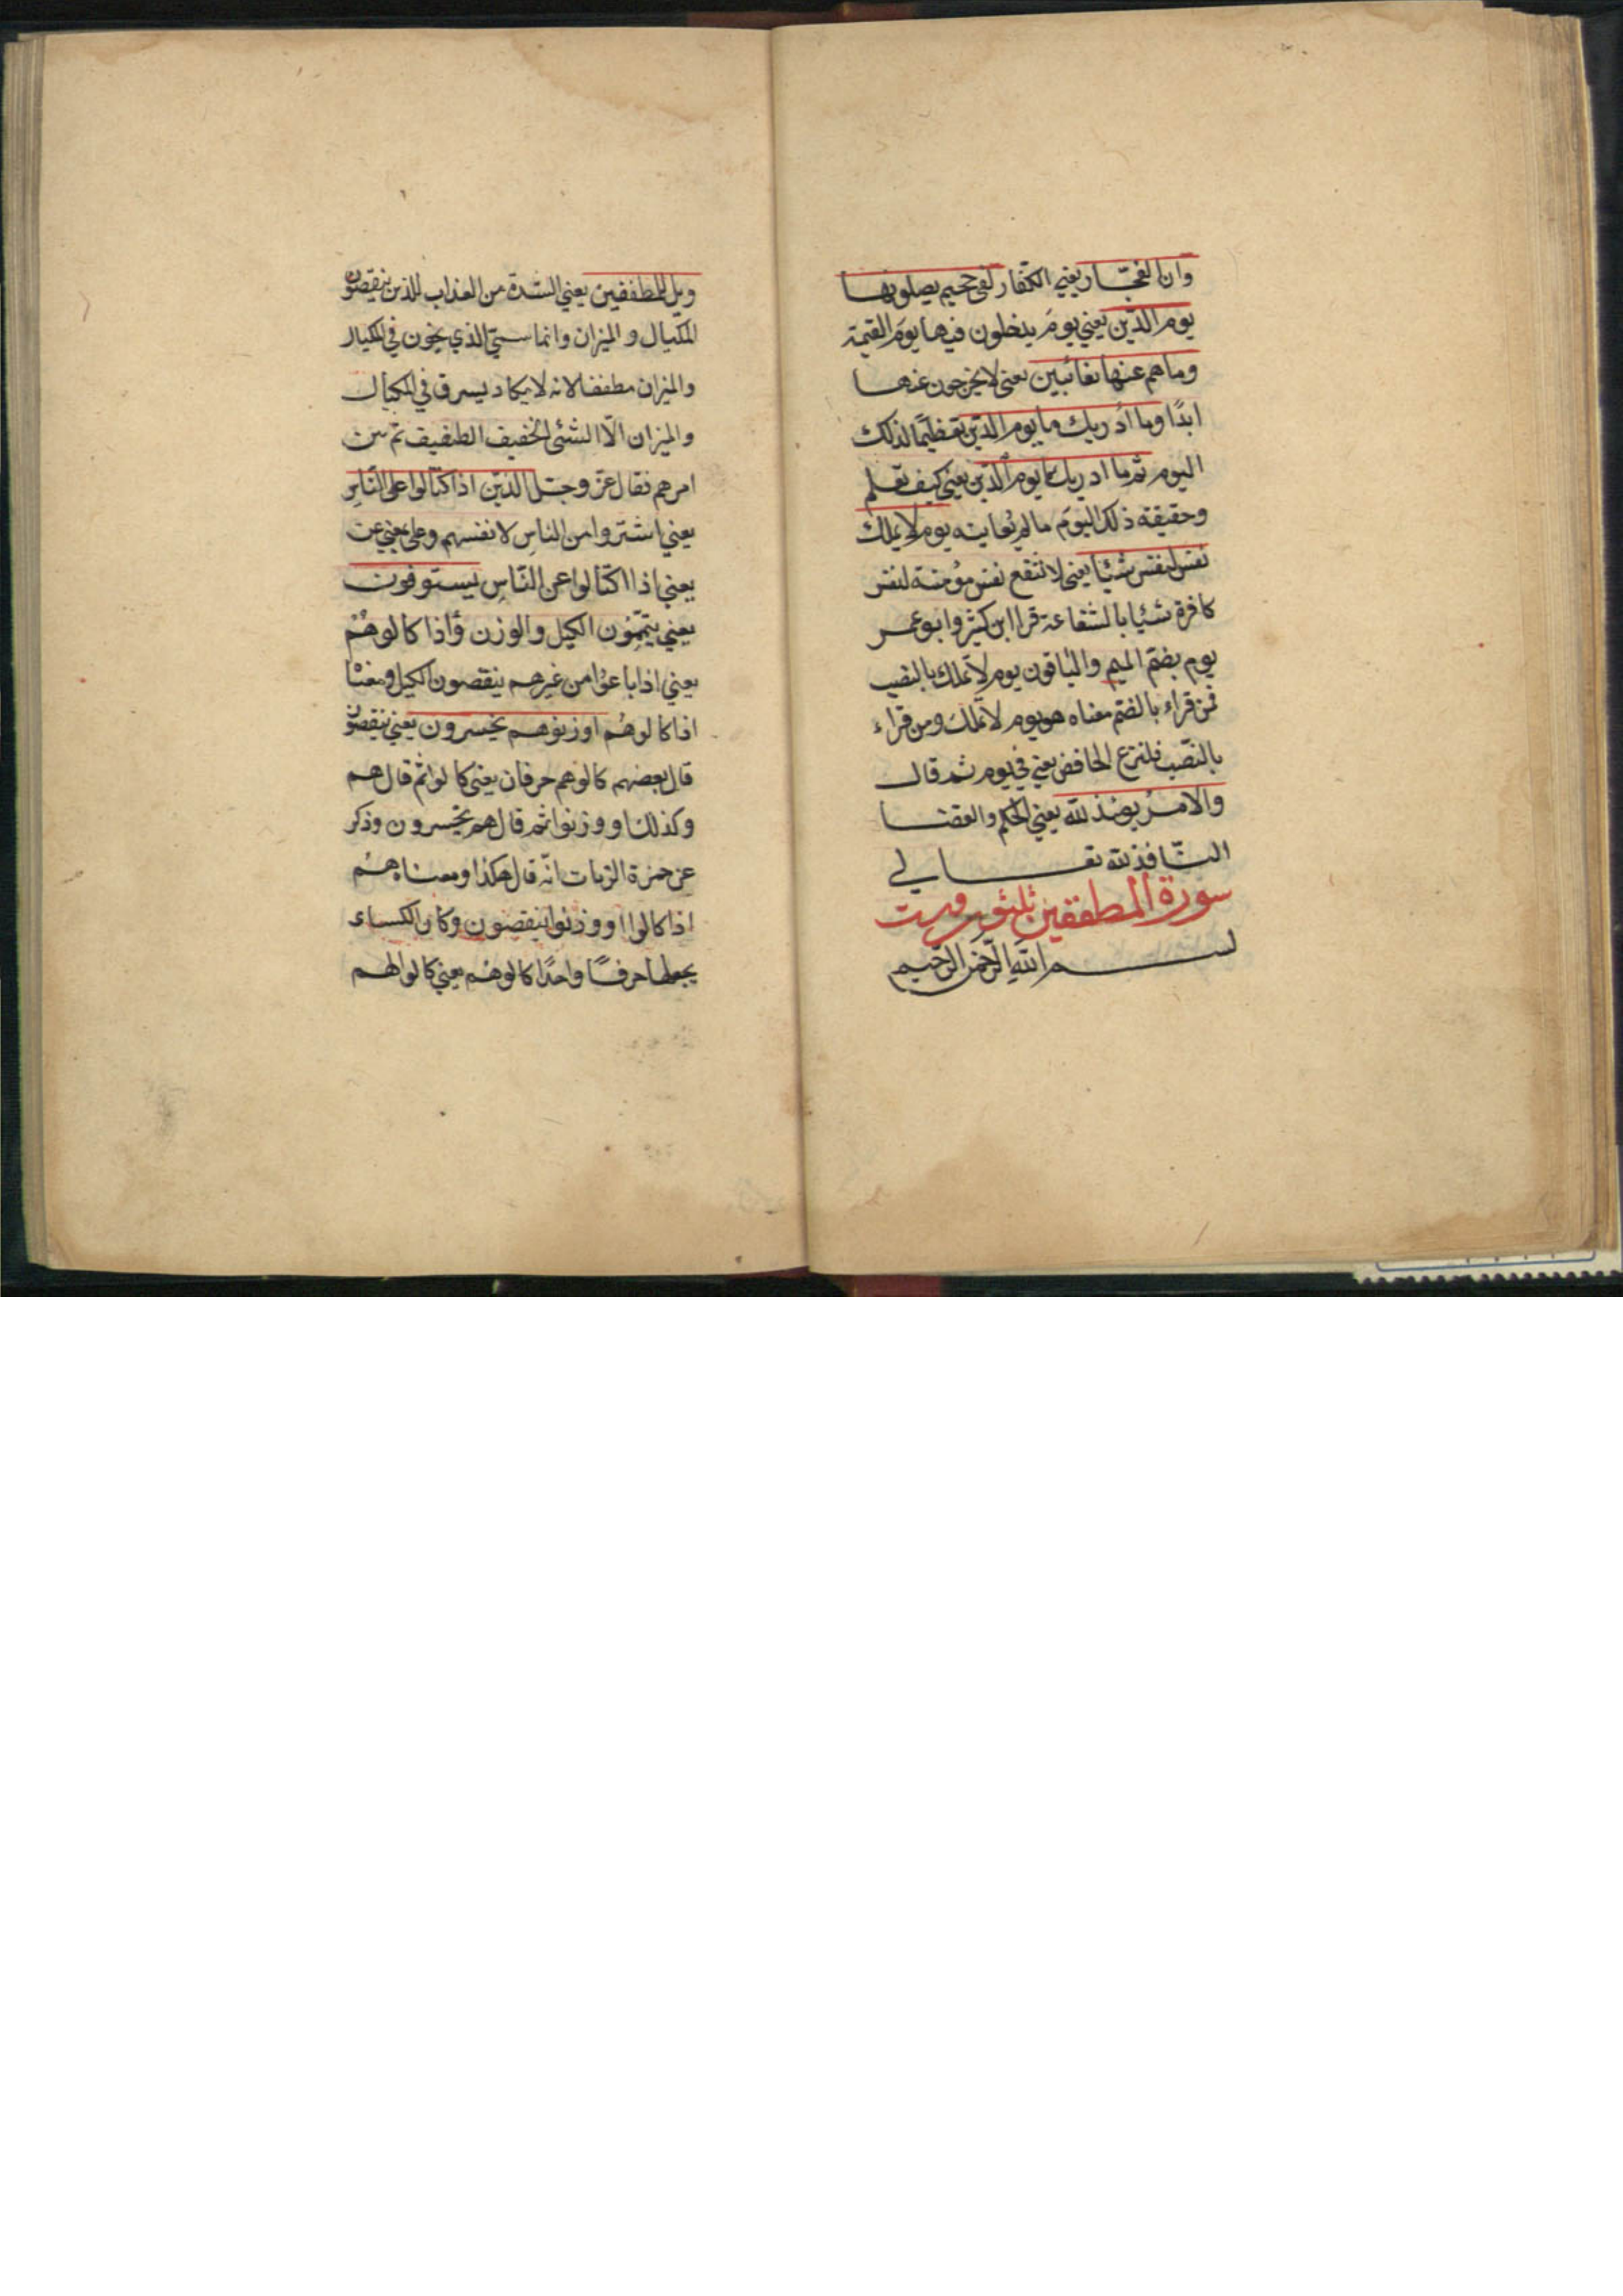 وان الفجّار يعني الكفار لفي جحيم يصلونها
يوم الدّين يعني يومَ يدخلون فيها يومَ القيمة
وما هم عنها بغائبين يعني لا يخرجون عنها
ابدًا وما ادريك ما يوم الدّين تعظيمًا لذلك
اليوم ثم ما ادريك ما يوم الدّين يعني كيف تعلم
وحقيقة ذلك اليوَم ما لم تُعاينه يوم لا يملك
نفس لنفس شيئا يعني لا تنفع نفس مؤمنة لنفس
كافرة شيئا بالشفاعة قرا ابن كثير وابو عمر
يوم بضمّ الميم والباقون يوم لا تملك بالنصب
فمن قراء بالضم معناه هو يوم لا تملك ومن قراء
بالنصّب فلنزع الخافض يعني في يوم ثم قال
والامرُ يومئذ للّه يعني الحكم والقضا
النّافذ لله تعالي
سورة المطففين ثلثون وست
بسم اللّهِ الرّحمن الرّحيم
ويل للمطففين يعني الشدة من العذاب للذين ينقصون
المكيال والميزان وانما سمّي الذي يخون في المكيال
والميزان مطففا لانه لا يكاد يسرق في المكيال
والميزان الّا الشئ الخفيف الطفيف ثم بين
امرهم فقال عزّ وجلّ الذّين اذا كتالوا على النّاسِ
يعني اشتروا من الناسِ لانفسهم وعلى بمعني عن
يعني اذا اكتالوا عن النّاسِ يستوفون
يعني يتمّون الكيل والوزن وَاذا كالوهُمْ
يعني اذا باعوُا من غيرهم ينقصون الكيل ومعنْا
اذا كالوهُم اوزنوهم يخسرون يعني ينقصون
قال بعضهم كالوهم حرفان يعني كالوا ثم قال هم
وكذلك اووزنوا ثم قال هم يخسرون وذكر
عن حمزة الزيات انّه قال هكذا ومعناه هُم
اذا كالوا اووزنوا ينقصون وكان الكساء
يجعلها حرفًا واحدًا كالوهُم يعني كالوا لهم